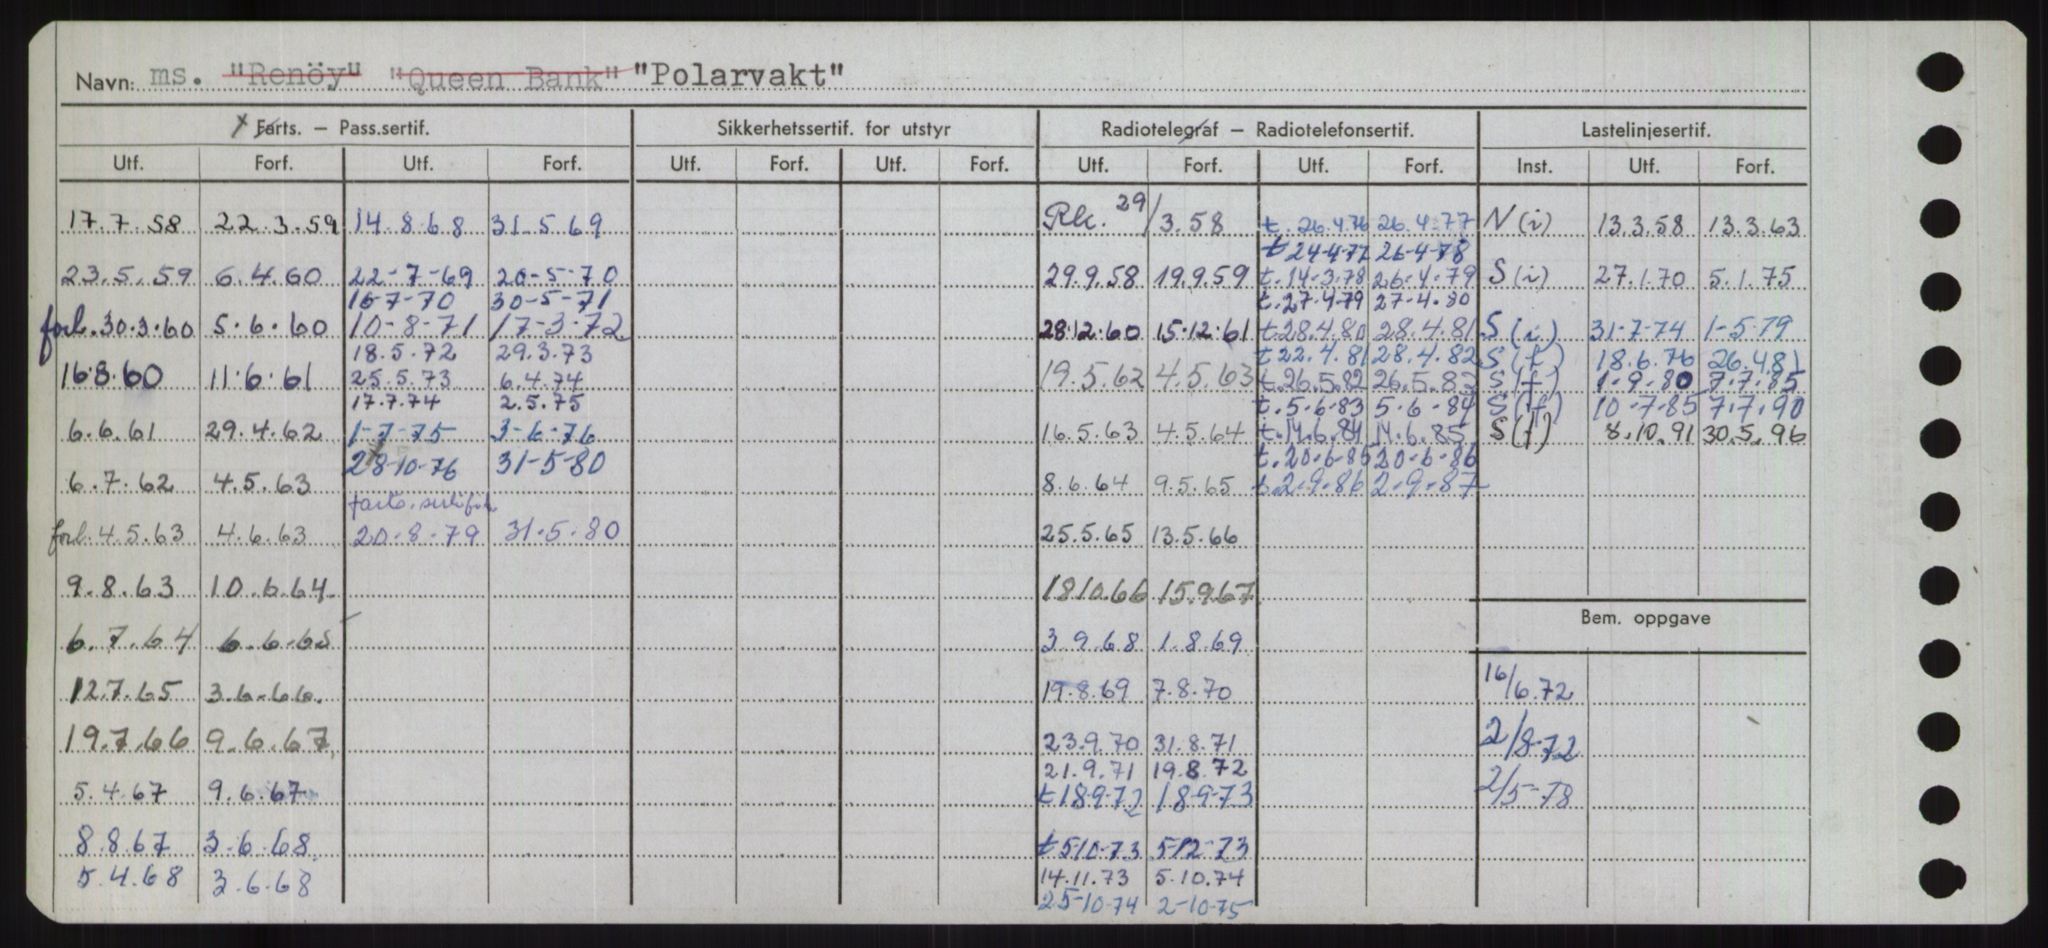 Navn: ms. "Renöy" "Queen Bank" "Polarvakt"
x Farts. – Pass.sertif. Sikkerhetssertif. for utstyr Radiotelegraf – Radiotelefonsertif. Lastelinjesertif.
Utf. Forf. Utf. Forf. Utf. Forf. Utf. Forf. Utf. Forf. Utf. Forf. Inst. Utf. Forf.
17.7.58 22.3.59 14.8.68 31.5.69 Rk. 29/3.58 t. 26.4.76 26.4.77 N(i) 13.3.58 13.3.63
t 24-4-77 26-4-78
23.5.59 6.4.60 22-7-69 20-5-70 29.9.58 19.9.59 t.14-3.78 26-4-79 S(i) 27.1.70 5.1.75
16-7-70 30-5-71 t.27-4.79 27-4.80
forl. 30.3.60 5.6.60 10-8-71 17-3-72 28.12.60 15.12.61 t.28.4.80 28.4.81 S(i) 31-7-74 1-5-79
18.5.72 29.3.73 t 22.4.81 28.4.82 S(f) 18.6.76 26.4.81
16.8.60 11.6.61 25.5.73 6.4.74 19.5.62 4.5.63 t.26.5.82 26.5.83 S(f) 1-9-80 7.7.85
17.7.74 2.5.75 t.5-6-83 5-6-84 S(f) 10-7-85 7.7.90
6.6.61 29.4.62 1-7-75 3-6-76 16.5.63 4.5.64 t.14.6.84 14.6.85 S(f) 8.10.91 30.5.96
28-10-76 31-5-80 t.20-6-85 20-6-86
6.7.62 4.5.63 8.6.64 9.5.65 t.2-9.86 2-9-87
farts.sertifik
forl. 4.5.63 4.6.63 20-8-79 31.5.80 25.5.65 13.5.66
9.8.63 10.6.64 18.10.66 15.9.67
Bem. oppgave
6.7.64 6.6.65 3.9.68 1.8.69
12.7.65 3.6.66 19.8.69 7.8.70 16/6.72
19.7.66 9.6.67 23.9.70 31.8.71 2/8-72
21.9.71 19.8.72
5.4.67 9.6.67 t 18-9-72 18-9-73 2/5-78
8.8.67 3.6.68 t 5/10-73 5/12-73
5.4.68 3.6.68 14.11.73 5.10.74
25-10-74 2-10-75